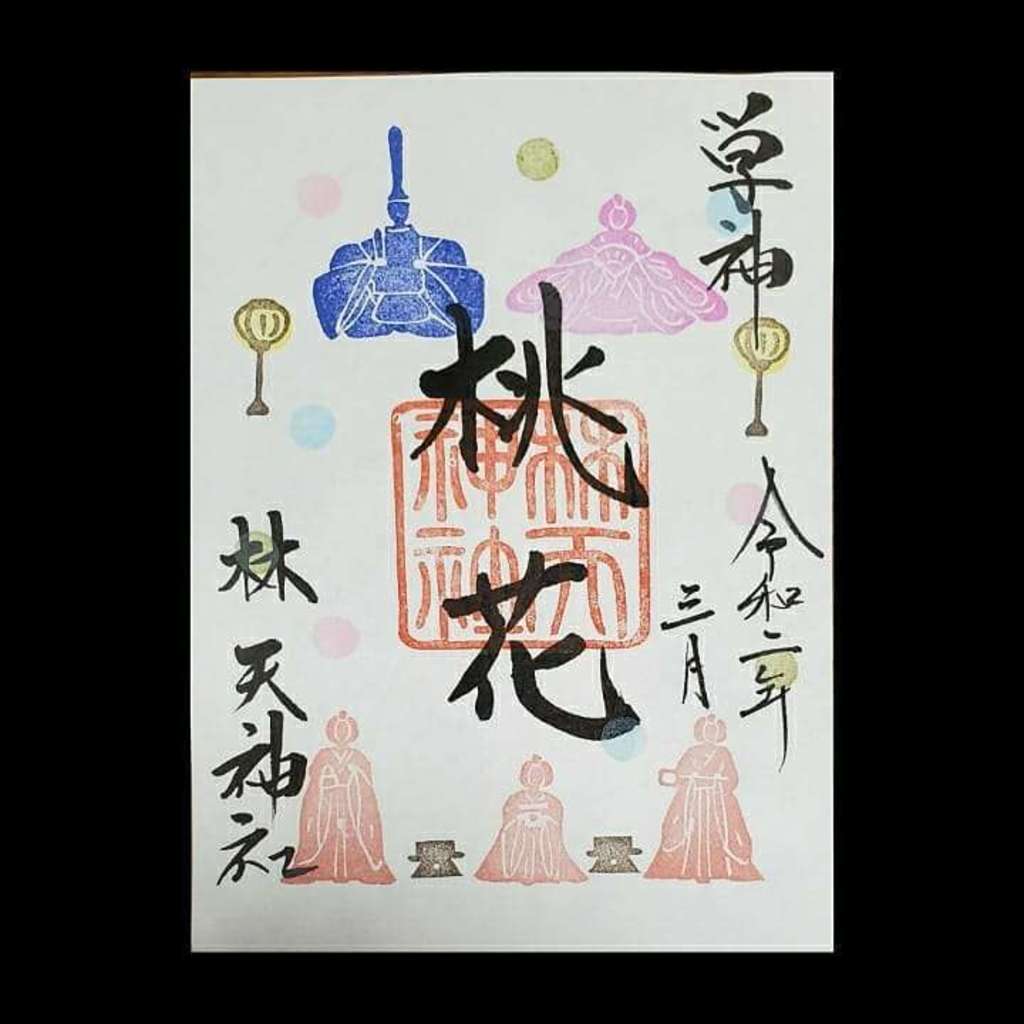 学神
令和二年
三月
桃花
林天神社
林天
神社